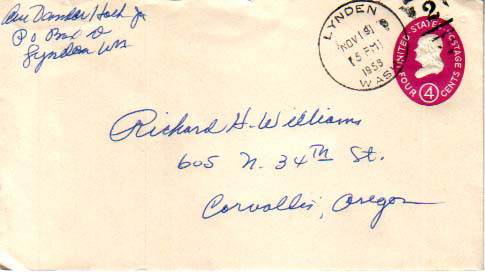 PO Box D
Lynden Wn
LYNDEN
NOV 19
5 PM
1958
WASH.
2
UNITED STATES POSTAGE
4
FOUR CENTS
Richard H. Williams
605 N. 34th St.
Corvallis, Oregon